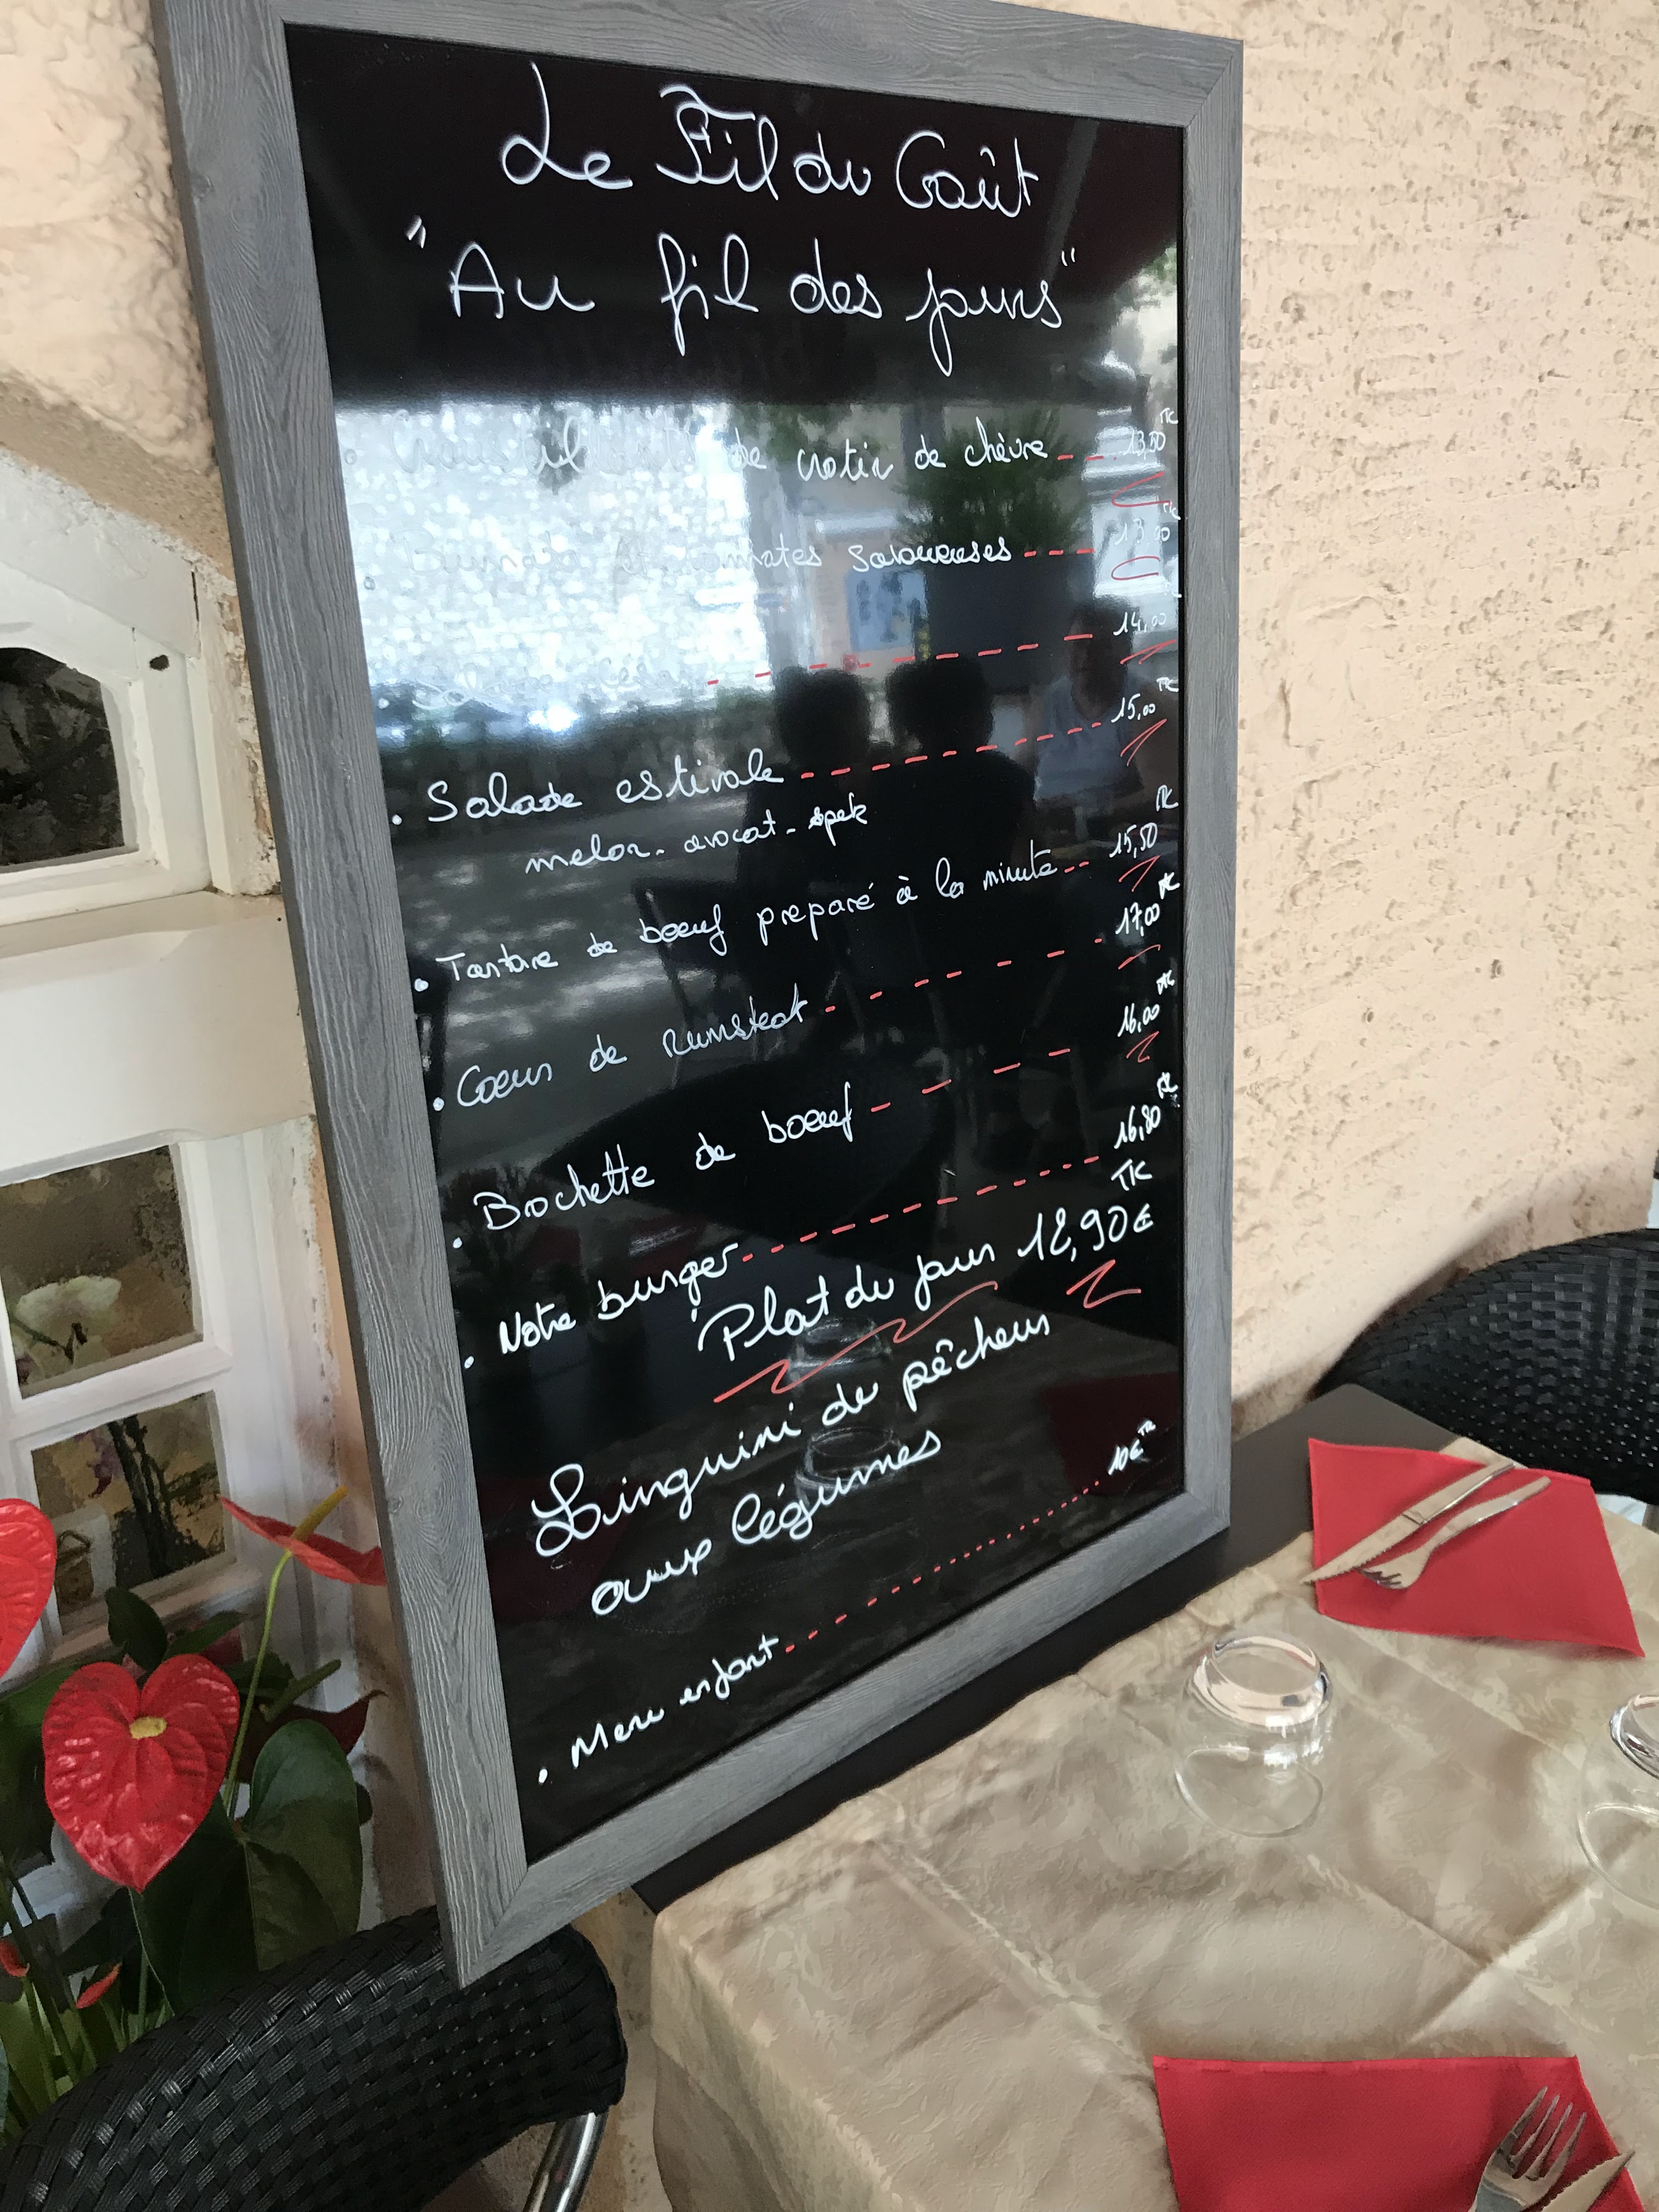 Le Fil du Goût
"Au fil des jours"
de crotin de chèvre 13,50 TTC
savoureuses 13,00 TTC
14,00
• Salade estivale 15,00 TTC
melon - avocat - spek
• Tartare de boeuf preparé à la minute 15,50 TTC
• Coeur de Rumsteak 17,00 TTC
• Brochette de boeuf 16,00 TTC
• Notre burger 16,80 TTC
Plat du jour 12,90€ TTC
Linguini du pêcheur
aux légumes
• Menu enfant 10€ TTC